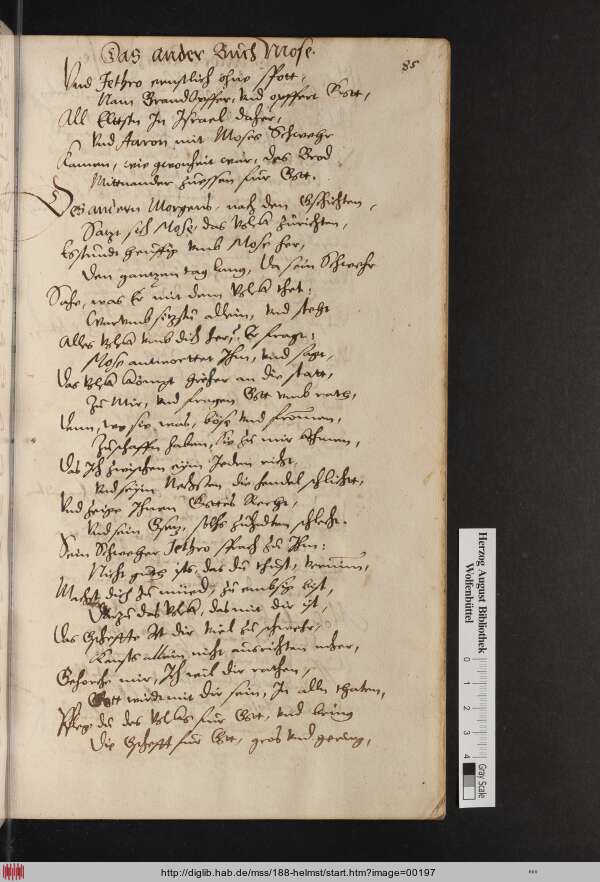 Das ander Buch Mose.
85
Vnd Jethro ernstlich ohne spott,
Nam Brandopffer, vnd opffert Gott,
All Eltsten In Israel daher,
Vnd Aaron mit Moses Schweher
Kamen, wie gewonheit war, das Brod
Mittnander zuessen für Gott.
Des andern Morgens, nach den Gschichten,
Satzt sich Mose, das Volck zurichten,
Es stundt heuffig vmb Mose her,
Den gantzen tag lang, Da sein Schweher
Sahe, was Er mit dem Volck thet:
Warumb sitzstu allein, vnd steht
Alles Volck vmb dich her, Er fragt:
Mose antworttet Ihm, vnd sagt,
Das Volck kömpt hieher an die statt,
Zu Mir, vnd fragen Gott vmb rath,
Denn, wo sie was, böse vnd frommen,
Zuschaffn haben, sie zu mir kommen,
Das Ich zwischen eym Jeden richt,
Vnd seym Nechsten die handel schlicht,
Vnd zeige Ihnen Gottes Recht,
Vnd sein Gsetz, solchs zuhalten schlecht.
Sein Schweher Jethro sprach zu Ihm:
Nicht gutt ists, das du thust, vernim,
Machst dich zu müed, zu embsig bist,
Darzu das Volck, das mit dir ist,
Das Gscheffte ist dir viel zu schwehr,
Kansts allein nicht ausrichten mher,
Gehorche mir, Ich will dir rathen,
Gott wirdt mit dir sein, In alln thaten,
Pfleg du des Volcks für Gott, vnd bring
Die Gschefft für Gott, gros vnd gering,
Herzog August Bibliothek
Wolfenbüttel
0 1 2 3 4
Gray Scale
http://diglib.hab.de/mss/188-helmst/start.htm?image=00197